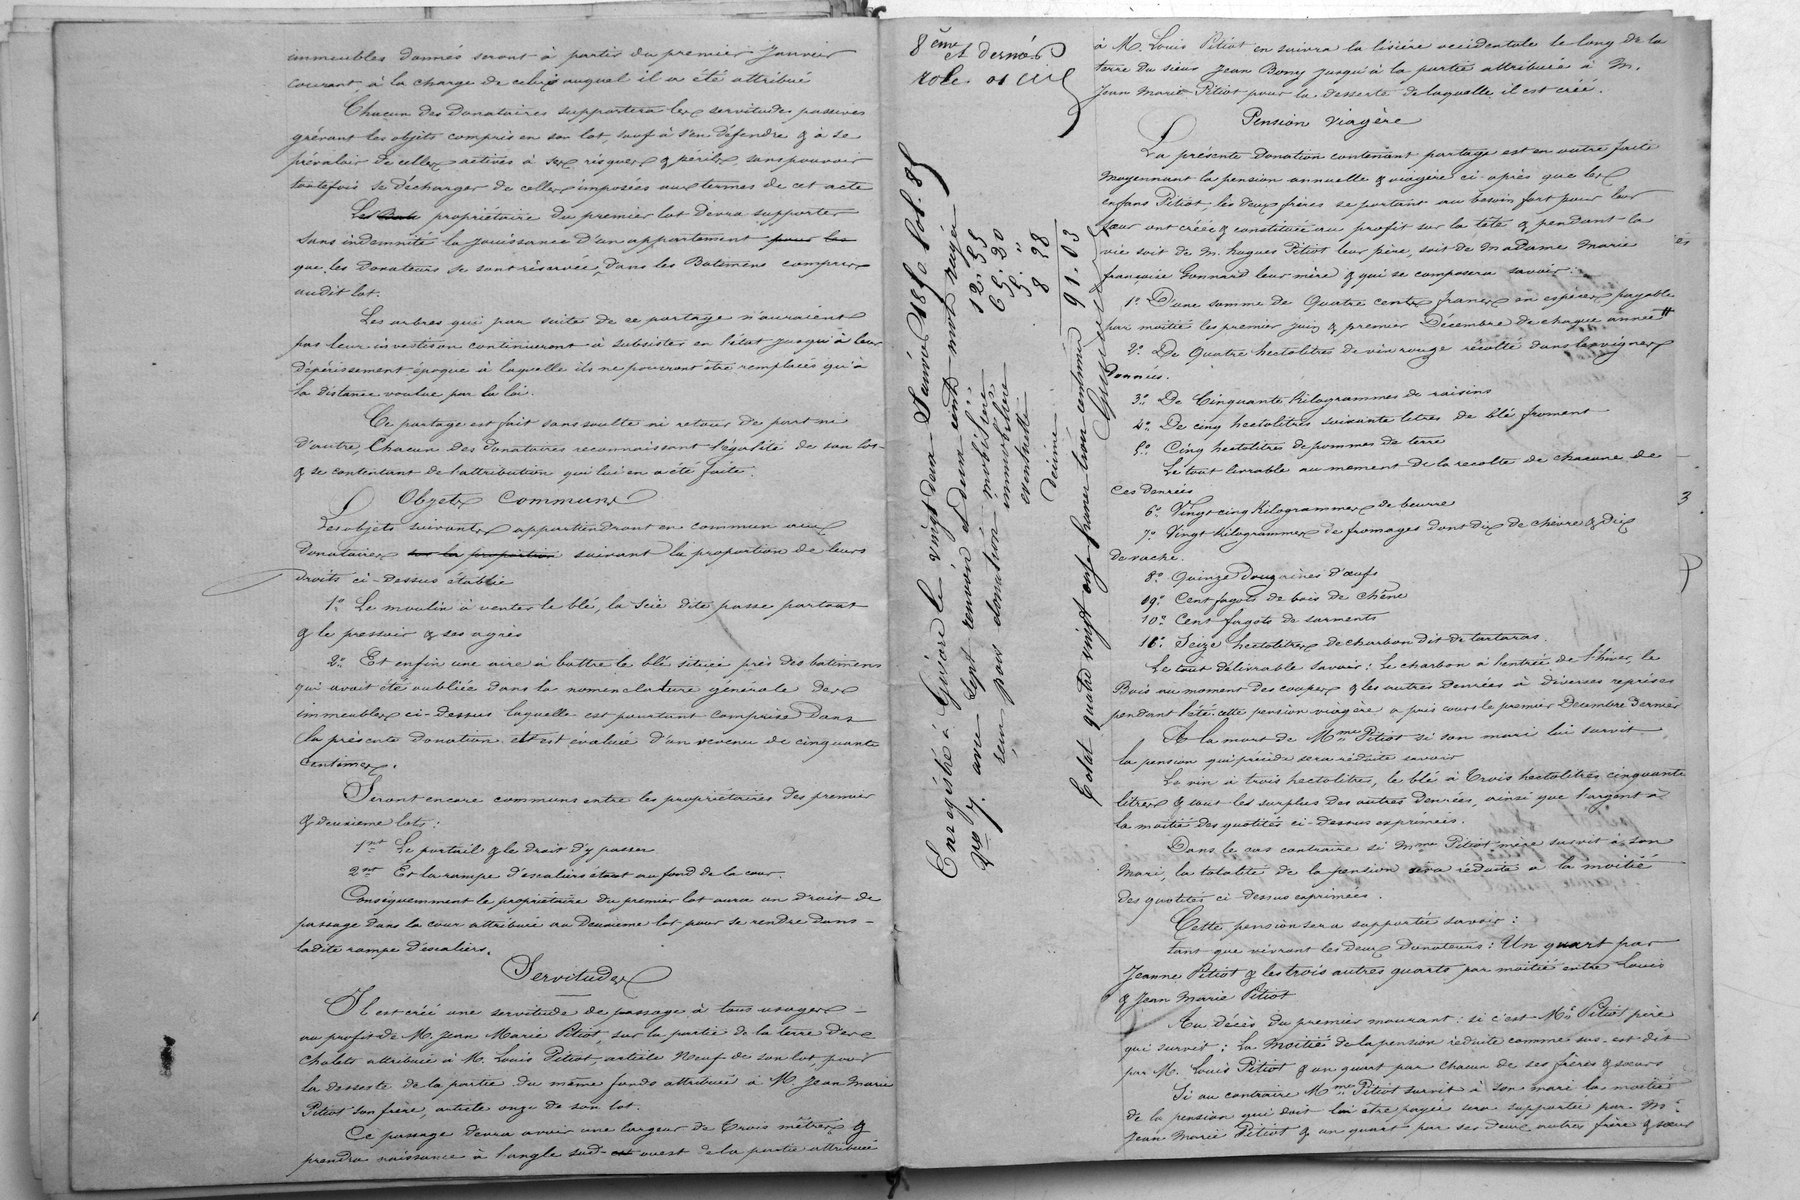 immeubles donnés seront à partir du premier Janvier
courant, à la charge de celui auquel il a été attribué
Chacun des Donataires supportera les servitudes passives
grévant les objets compris en son lot, sauf à s'en défendre & à se
prévaloir de celles actives à ses risques & périls, sans pouvoir
toutefois se décharger de celles imposées aux termes de cet acte
propriétaire du premier lot devra supporter
sans indemnité la jouissance d'un appartement pour les
que les Donateurs se sont réservée, dans les Batimens compris
audit lot.
Les arbres qui par suite de ce partage n'auraient
pas leur investison continueront à subsister en l'état jusqu'à leur
dépérissement époque à laquelle ils ne pourront être remplacés qu'à
la distance voulue par la loi.
Ce partage est fait sans soulte ni retour de part ni
d'autre, Chacun des donataires reconnaissant l'égalité de son lot
& se contentant de l'attribution qui lui en a été faite.
Objets Communs
Les objets suivants appartiendront en commun aux
donataires sur la proportion suivant la proportion de leurs
droits ci-dessus établie
1º Le moulin à venter le blé, la Scie dite passe partout
& le pressoir & ses agrès
2º Et enfin une aire à battre le blé située près des batimens
qui avait été oubliée dans la nomenclature générale des
immeubles ci-dessus laquelle est pourtant comprise dans
la présente donation et est évaluée d'un revenu de cinquante
centimes.
Seront encore communs entre les propriétaires des premier
& deuxième lots :
1nt Le portail & le droit d'y passer
2nt Et la rampe d'escaliers étant au fond de la cour.
Conséquemment le propriétaire du premier lot aura un droit de
passage dans la cour attribuée au Deuxième lot pour se rendre dans
ladite rampe d'escaliers.
Servitudes
Il est créé une servitude de passage à tous usages
au profit de M. Jean Marie Pitiot, sur la partie de la terre des
Chalets attribuée à M. Louis Pitiot, article Neuf de son lot, pour
la desserte de la partie du même fonds attribuée à M. Jean Marie
Pitiot son frère, article onze de son lot.
Ce passage devra avoir une largeur de Trois mètres &
prendra naissance à l'angle sud-est ouest de la partie attribuée
8ème et dernier
role
Enregistré à Givors le vingt deux Janvier 1850 fol. 85
Vro 7. avec Sept renvois et deux cents mot rayés
reçu pour donation mobilière 12.55
immobilière 65.20
éventuelle 5 "
décime 8 28
91.03
Total quatre vingt onze francs trois centimes
à M. Louis Pitiot en suivra la lisière occidentale le long de la
terre du sieur Jean Bony jusqu'à la partie attribuée à M.
Jean Marie Pitiot pour la desserte de laquelle il est créé.
Pension Viagère
La présente Donation contenant partage est en outre faite
moyennant la pension annuelle & viagère ci-après que les
enfans Pitiot, les deux frères se portant au besoin fort pour leur
sœur ont créée & constituée au profit sur la tête & pendant la
vie soit de M. hugues Pitiot leur père, soit de Madame Marie
françoise Gonnard leur mère & qui se composera savoir :
1º D'une somme de Quatre cents francs en espèces payable
par moitié les premier juin & premier Décembre de chaque année
2º De Quatre hectolitres de vin rouge récolté dans les vignes
Données.
3º De Cinquante Kilogrammes de raisins
4º De cinq hectolitres soixante litres de blé froment
5º Cinq hectolitres de pommes de terre
Le tout livrable au moment de la récolte de chacune de
ces denrées
6º Vingt cinq Kilogrammes de beurre
7º Vingt Kilogrammes de fromages dont dix de chèvre & dix
de vache.
8º Quinze Douzaines d'œufs
9º Cent fagots de bois de chêne
10º Cent fagots de sarments
11º Seize hectolitres de charbon dit de tartaras.
Le tout délivrable savoir : Le charbon à l'entrée de l'hiver, le
Bois au moment des coupes & les autres Denrées à diverses reprises
pendant l'été. cette pension viagère a pris cours le premier Décembre dernier
A la mort de Mme Pitiot si son mari lui survit
la pension qui précède sera réduite savoir
Le vin à trois hectolitres, le blé à Trois hectolitres cinquante
litres & tout les surplus des autres denrées, ainsi que l'argent à
la moitié des quotités ci-dessus exprimées.
Dans le cas contraire si Mme Pitiot mère survit à son
Mari, la totalité de la pension sera réduite à la moitié
des quotités ci dessus exprimées.
Cette pension sera supportée savoir :
tant que vivront les deux Donateurs : Un quart par
Jeanne Pitiot & les trois autres quarts par moitié entre Louis
& Jean Marie Pitiot
Au décès du premier mourant : si c'est Mr Pitiot père
qui survit ; La Moitié de la pension réduite comme sus-est-dit
par M. Louis Pitiot & un quart par chacun de ses frères & sœurs
Si au contraire Mme Pitiot survit à son mari la moitié
de la pension qui doit lui être payée sera supportée par Mr
Jean Marie Pitiot & un quart par ses deux autres frère & sœur